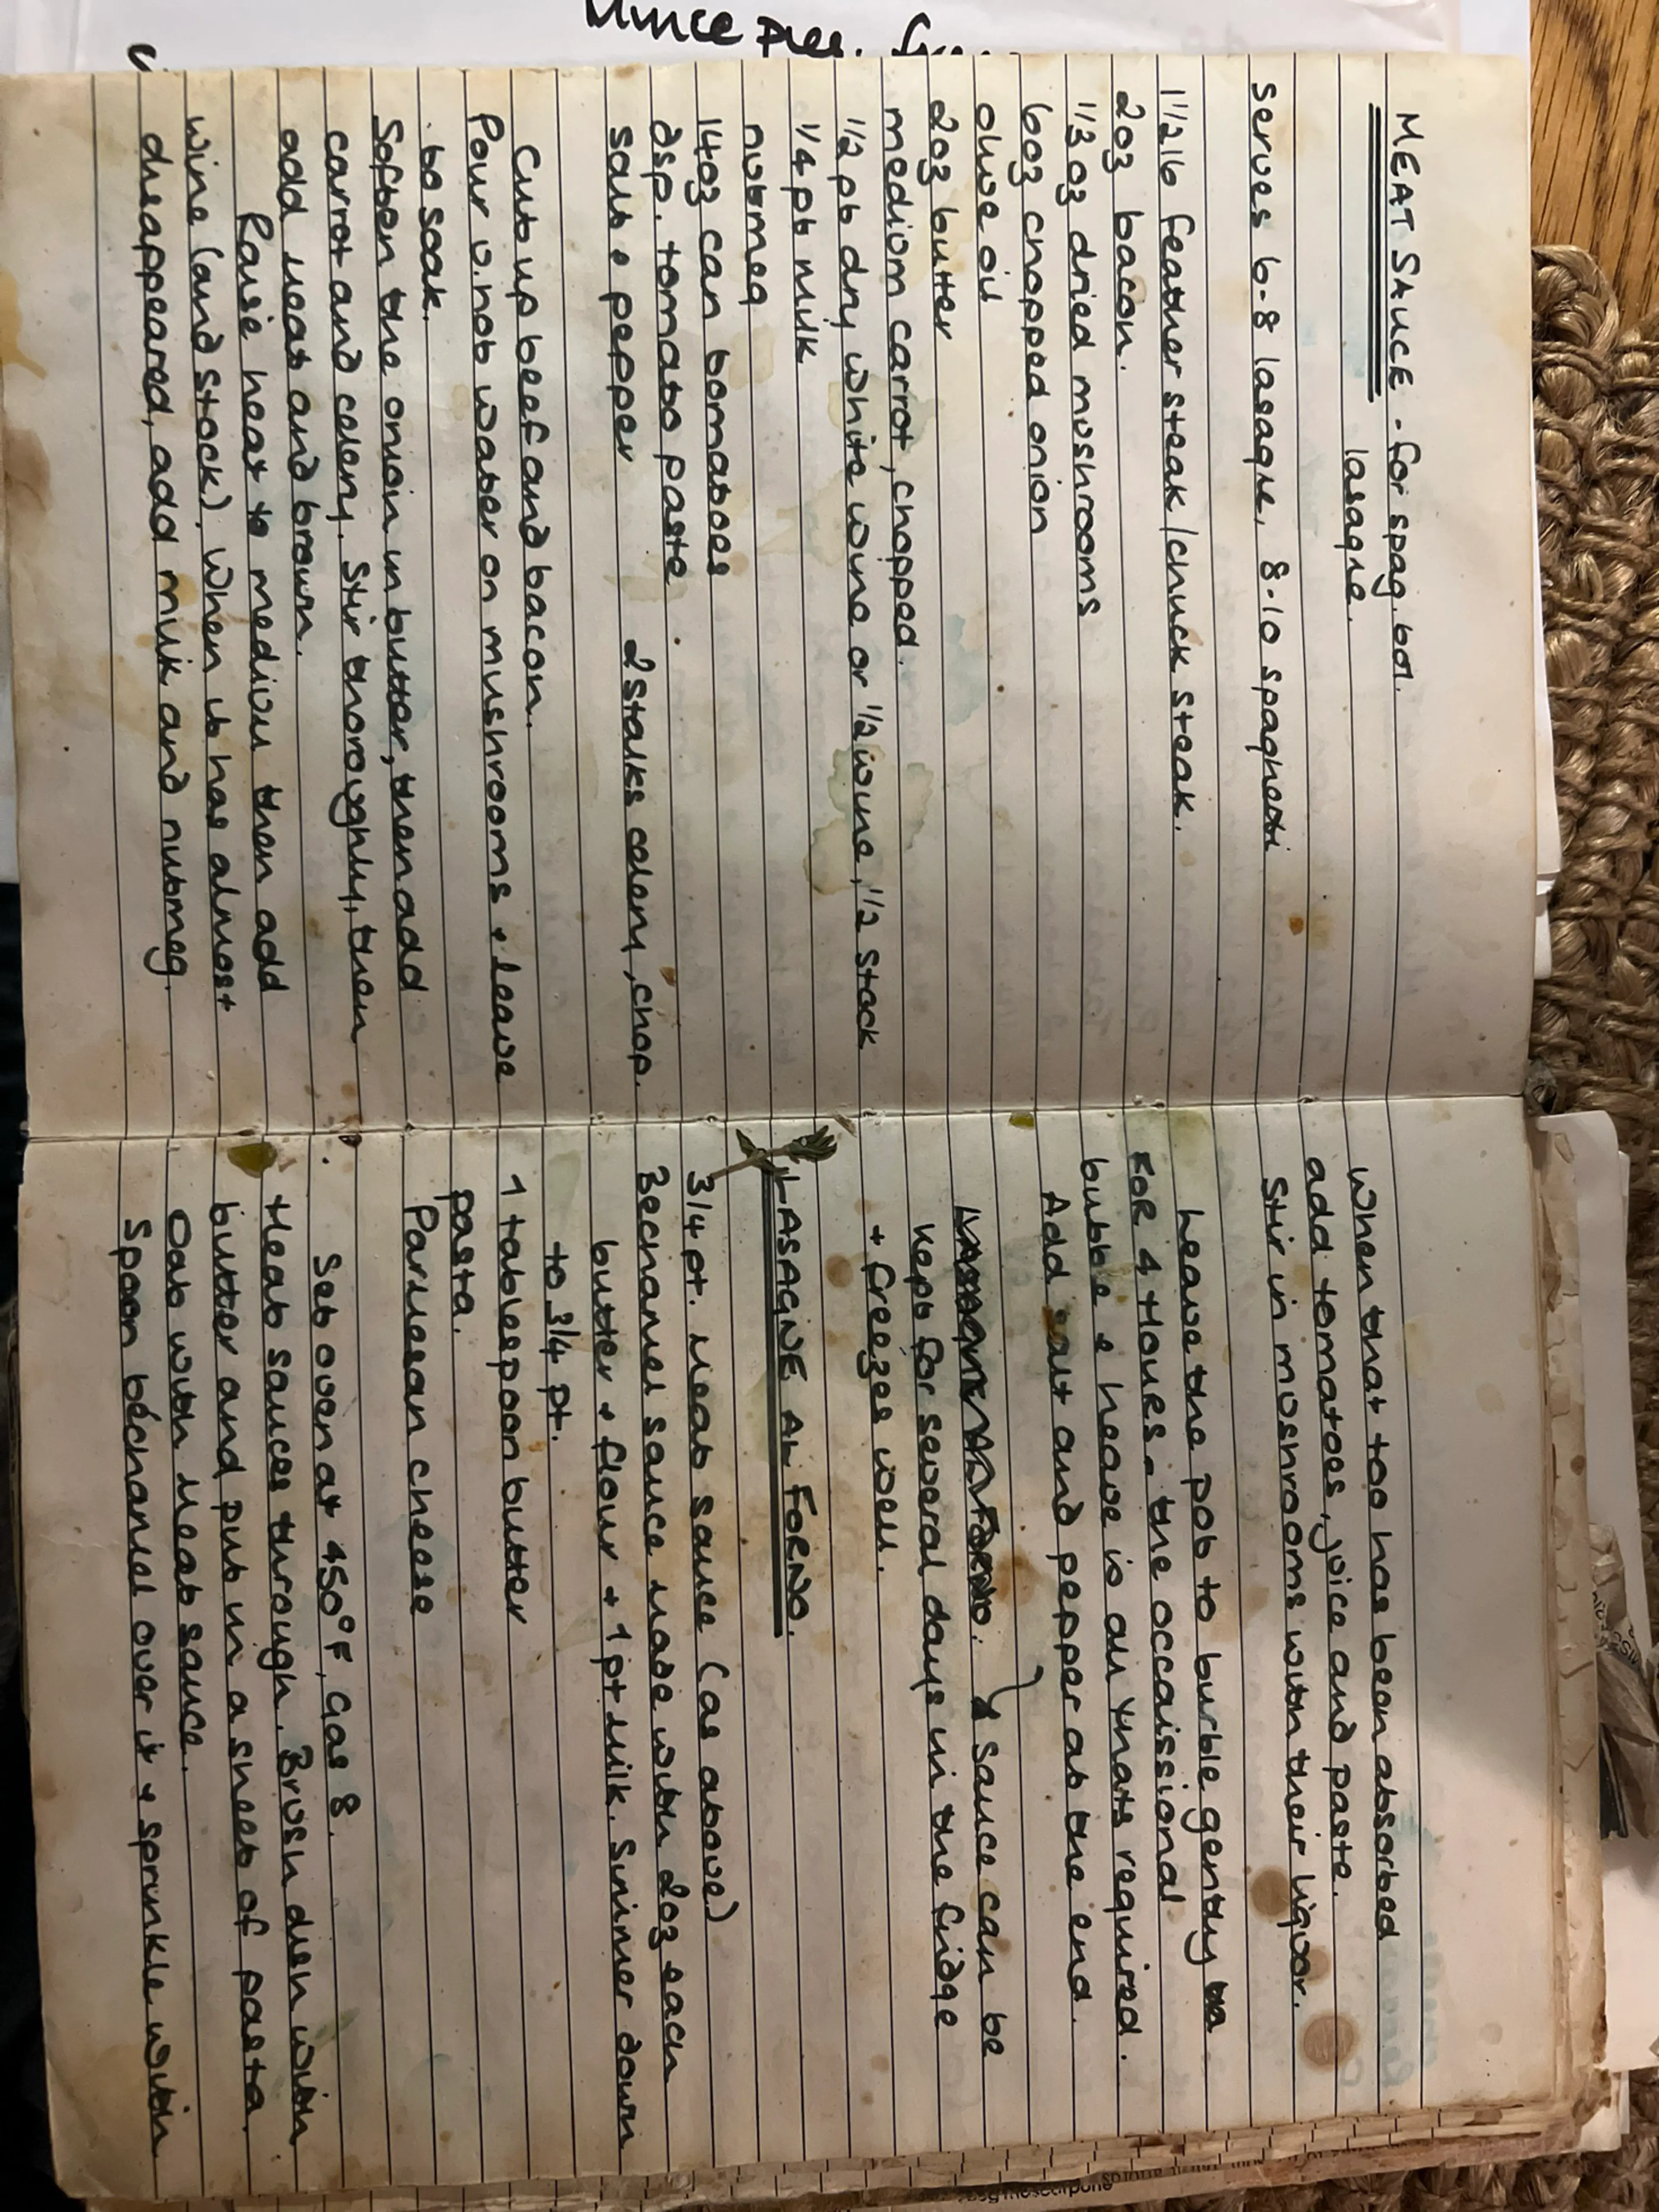 Mince pies.
MEAT SAUCE - for spag. bol.
lasagne.
serves 6-8 lasagne, 8-10 spaghetti
1 1/2 lb feather steak/chuck steak.
2oz bacon.
1/3 oz dried mushrooms
6oz chopped onion
olive oil
2oz butter
mediom carrot, chopped.
1/2 pt dry white wine or 1/2 wine, 1/2 stock
1/4 pt milk
nutmeg
14oz can tomatoes
dsp. tomato paste
salt & pepper 2 stalks celery, chop.
Cut up beef and bacon.
Pour v. hot water on mushrooms & leave
to soak.
Soften the onion in butter, then add
carrot and celery. Stir thoroughly, then
add meat and brown.
Raise heat to medium then add
wine (and stock). When it has almost
disappeared, add milk and nutmeg.
When that too has been absorbed
add tomatoes, juice and paste.
Stir in mushrooms with their liquor.
Leave the pot to burble gently
FOR 4 HOURS - the occaissional
bubble & heave is all thats required.
Add salt and pepper at the end.
Sauce can be
kept for several days in the fridge
+ freezes well.
LASAGNE AL FORNO.
3/4 pt. meat sauce (as above)
Bechamel sauce made with 2oz each
butter + flour + 1pt milk. Simmer down
to 3/4 pt.
1 tablespoon butter
pasta.
Parmesan cheese
Set oven at 450°F, Gas 8.
Heat sauces through. Brush dish with
butter and put in a sheet of pasta.
Dab with meat sauce.
Spoon béchamel over it & sprinkle with